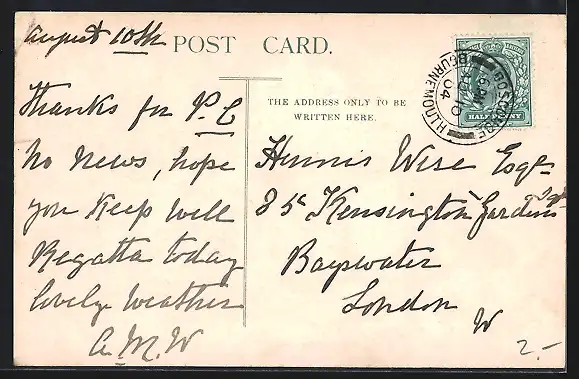 August 10th
POST CARD.
Thanks for P.C
No News, hope
you Keep Well
Regatta today
lovely Weather
A.M.W
THE ADDRESS ONLY TO BE
WRITTEN HERE.
BOSCOMBE
6 PM
AU 10
04
BOURNEMOUTH
HALFPENNY
Wise Esqr
85 Kensington Gardens Sq
Bayswater
London
W
2.-